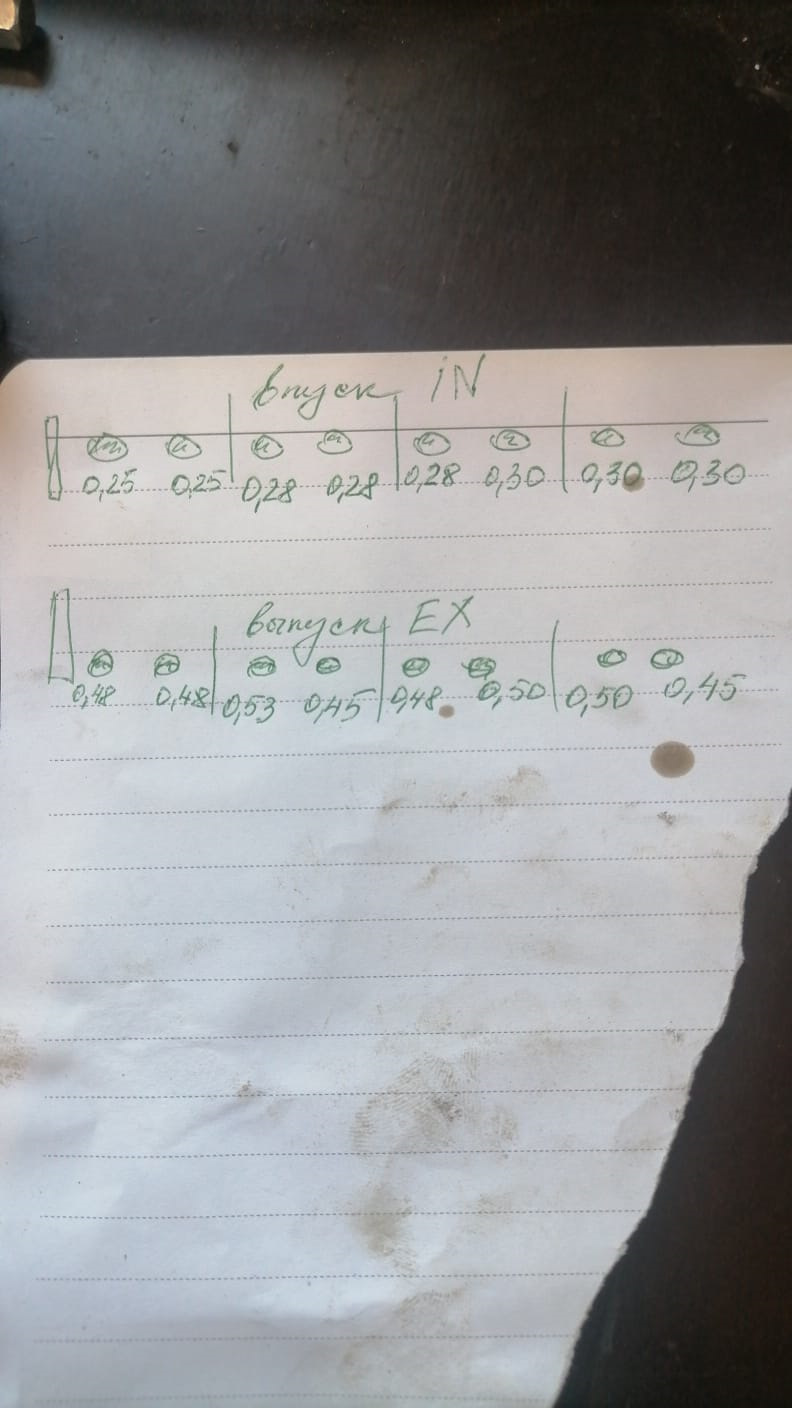 впуск IN
0,25 0,25 0,28 0,28 0,28 0,30 0,30 0,30
выпуск EX
0,48 0,48 0,53 0,45 0,48 0,50 0,50 0,45